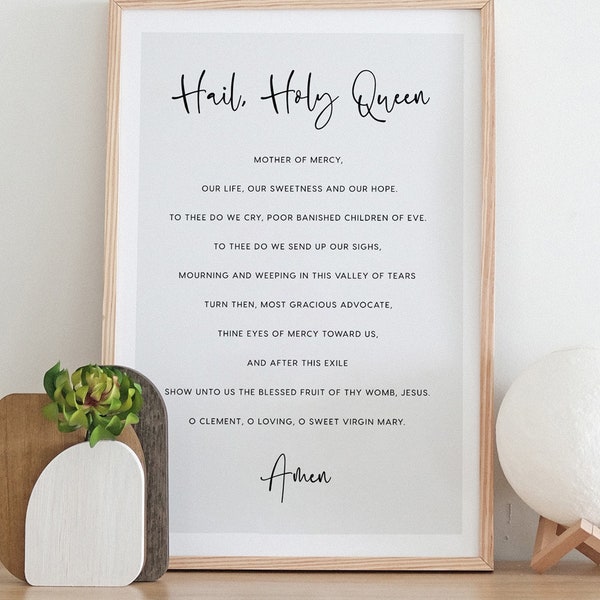 Hail, Holy Queen
MOTHER OF MERCY,
OUR LIFE, OUR SWEETNESS AND OUR HOPE.
TO THEE DO WE CRY, POOR BANISHED CHILDREN OF EVE.
TO THEE DO WE SEND UP OUR SIGHS,
MOURNING AND WEEPING IN THIS VALLEY OF TEARS
TURN THEN, MOST GRACIOUS ADVOCATE,
THINE EYES OF MERCY TOWARD US,
AND AFTER THIS EXILE
SHOW UNTO US THE BLESSED FRUIT OF THY WOMB, JESUS.
O CLEMENT, O LOVING, O SWEET VIRGIN MARY.
Amen